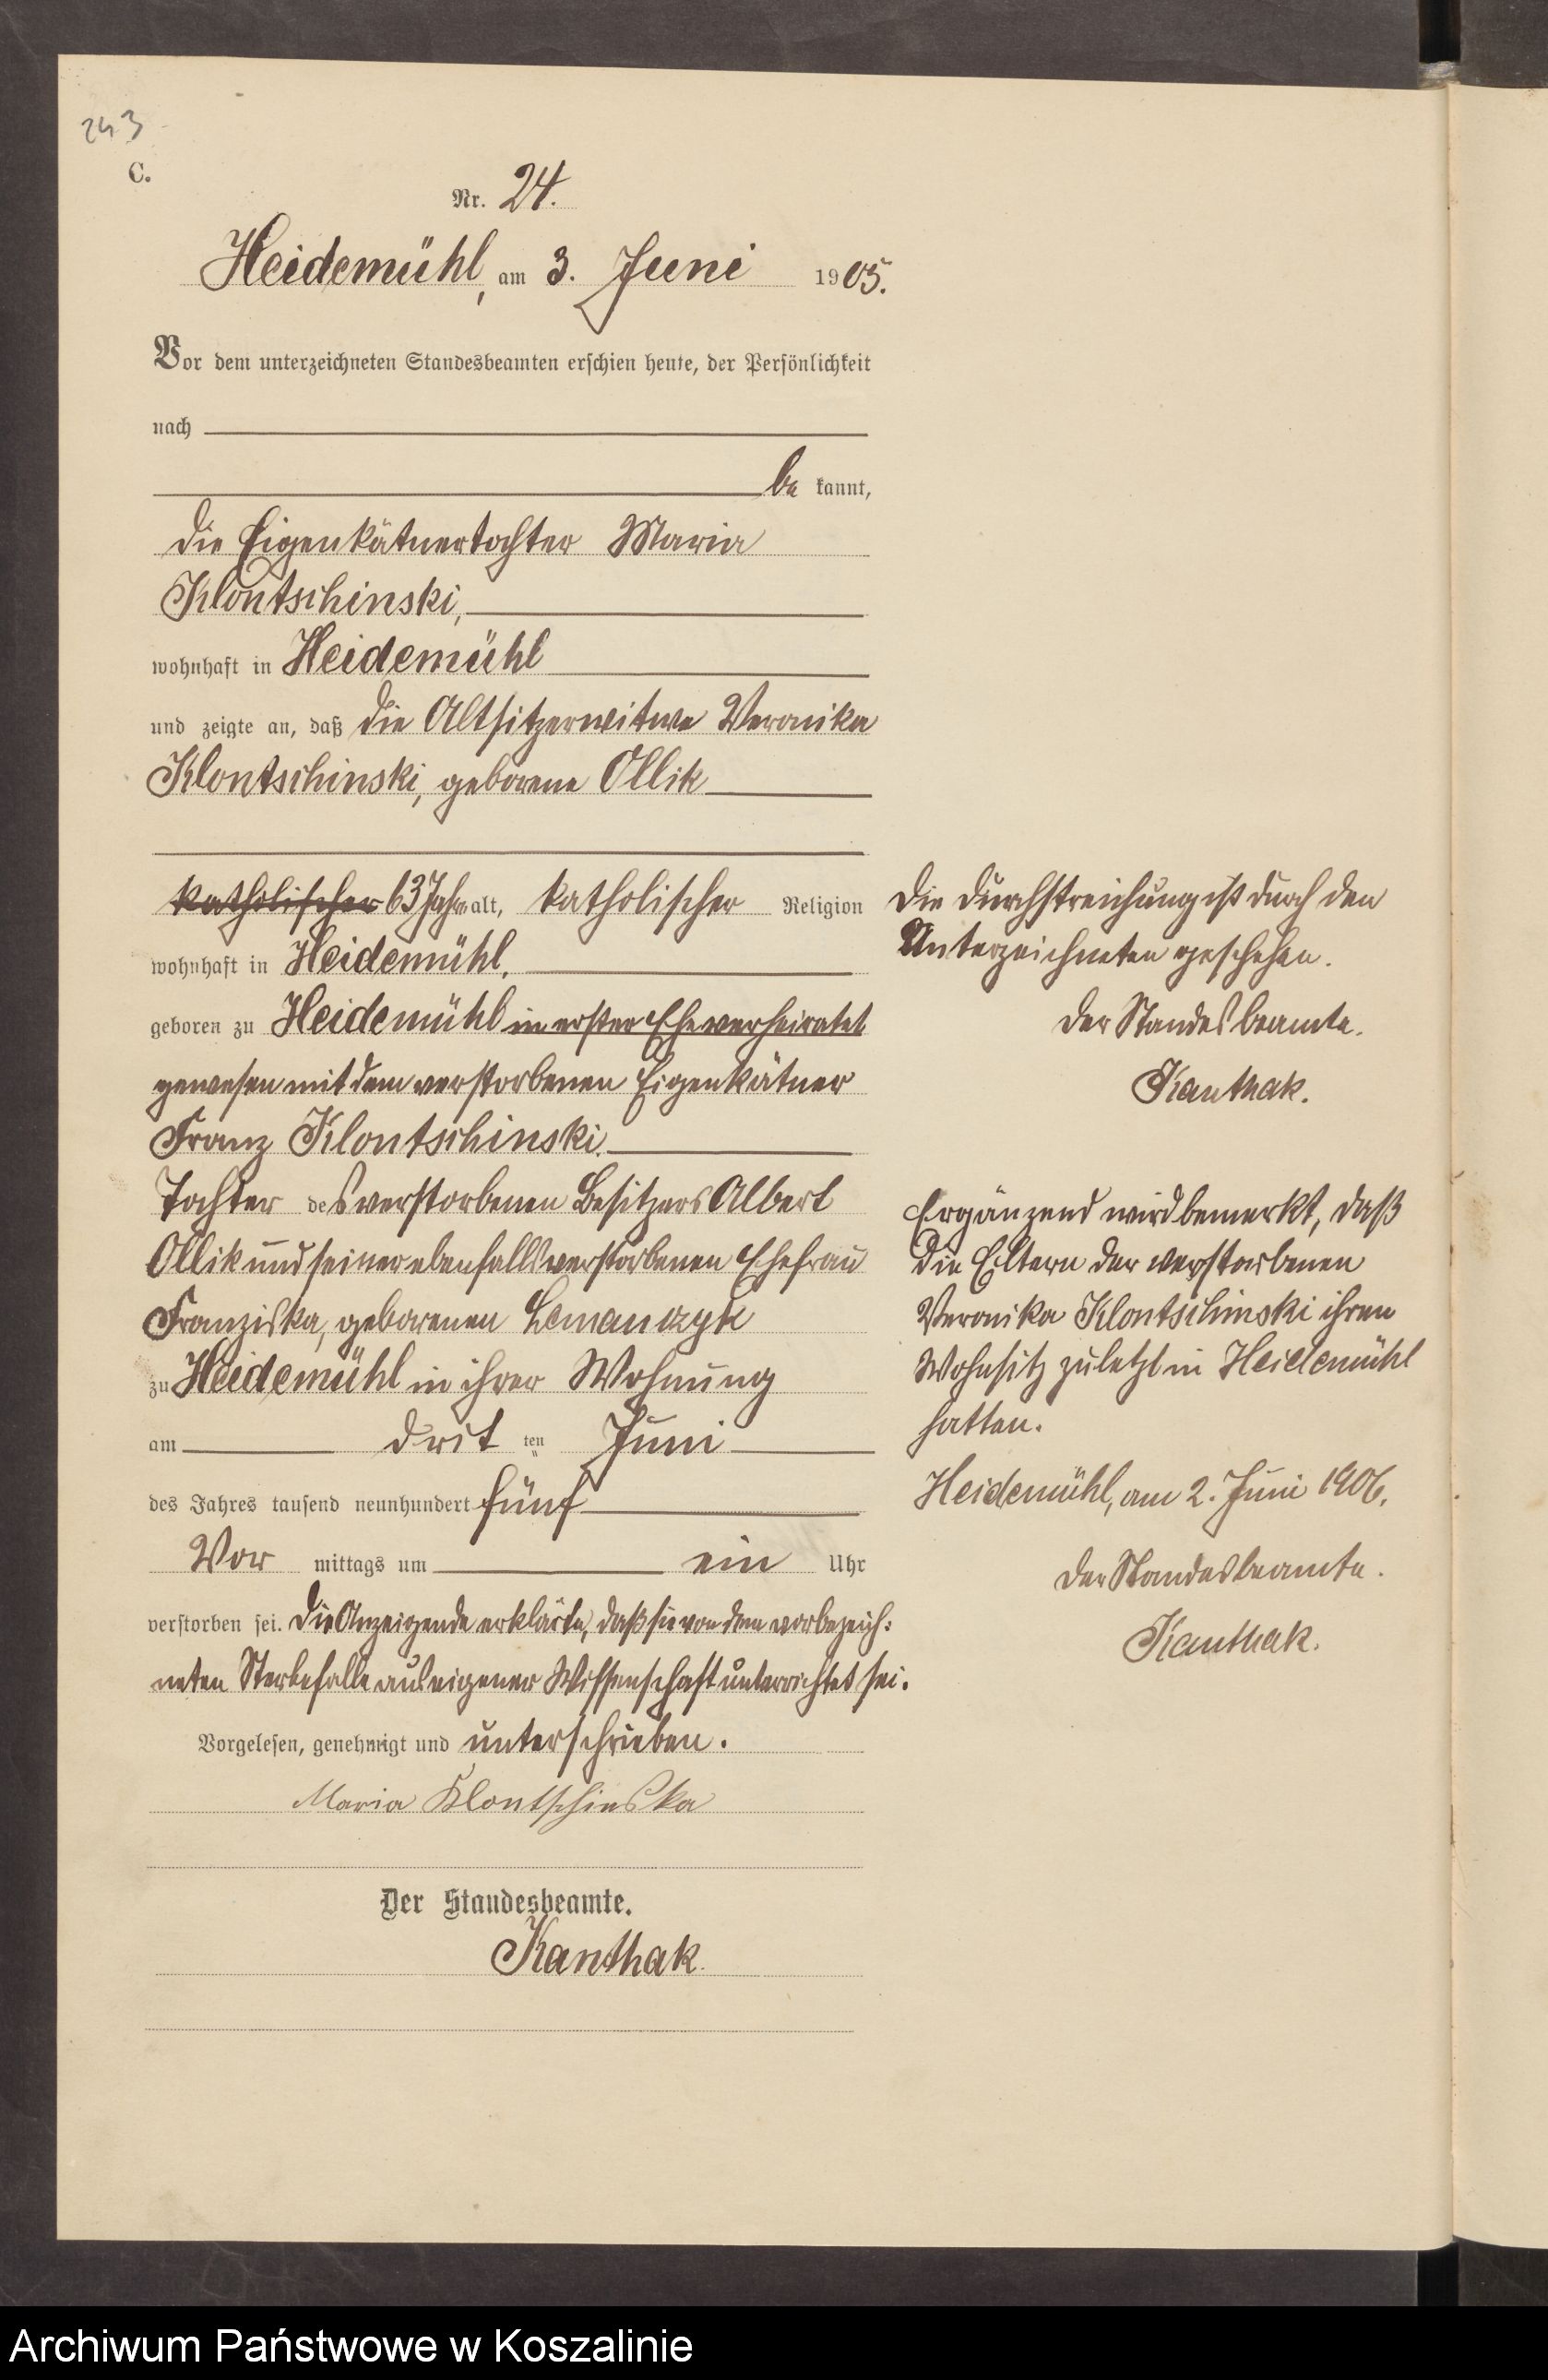 243
C.
Nr. 24.
Heidemühl, am 3. Juni 1905.
Vor dem unterzeichneten Standesbeamten erschien heute, der Persönlichkeit
nach
be kannt,
die Eigenkätnertochter Maria
Klontschinski,
wohnhaft in Heidemühl
und zeigte an, daß die Altsitzerwitwe Veronika
Klontschinski, geborene Ollik
katholischer 63 Jahre alt, katholischer Religion
wohnhaft in Heidemühl,
geboren zu Heidemühl in erster Ehe verheiratet
gewesen mit dem verstorbenen Eigenkätner
Franz Klontschinski,
Tochter des verstorbenen Besitzers Albert
Ollik und seiner ebenfalls verstorbenen Ehefrau
Franziska, geborenen Lemanczyk
zu Heidemühl in ihrer Wohnung
am drit ten Juni
des Jahres tausend neunhundert fünf
Vor mittags um ein Uhr
verstorben sei. Die Anzeigende erklärte, daß sie von dem vorbezeich:
neten Sterbefalle aus eigener Wissenschaft unterrichtet sei.
Vorgelesen, genehmigt und unterschrieben.
Maria Klontschinska
Der Standesbeamte.
Kanthak.
Die Durchstreichung ist durch den
Unterzeichneten geschehen.
Der Standesbeamte.
Kanthak.
Ergänzend wird bemerkt, daß
die Eltern der verstorbenen
Veronika Klontschinski ihren
Wohnsitz zuletzt in Heidemühl
hatten.
Heidemühl, am 2. Juni 1906.
Der Standesbeamte.
Kanthak.
Archiwum Państwowe w Koszalinie